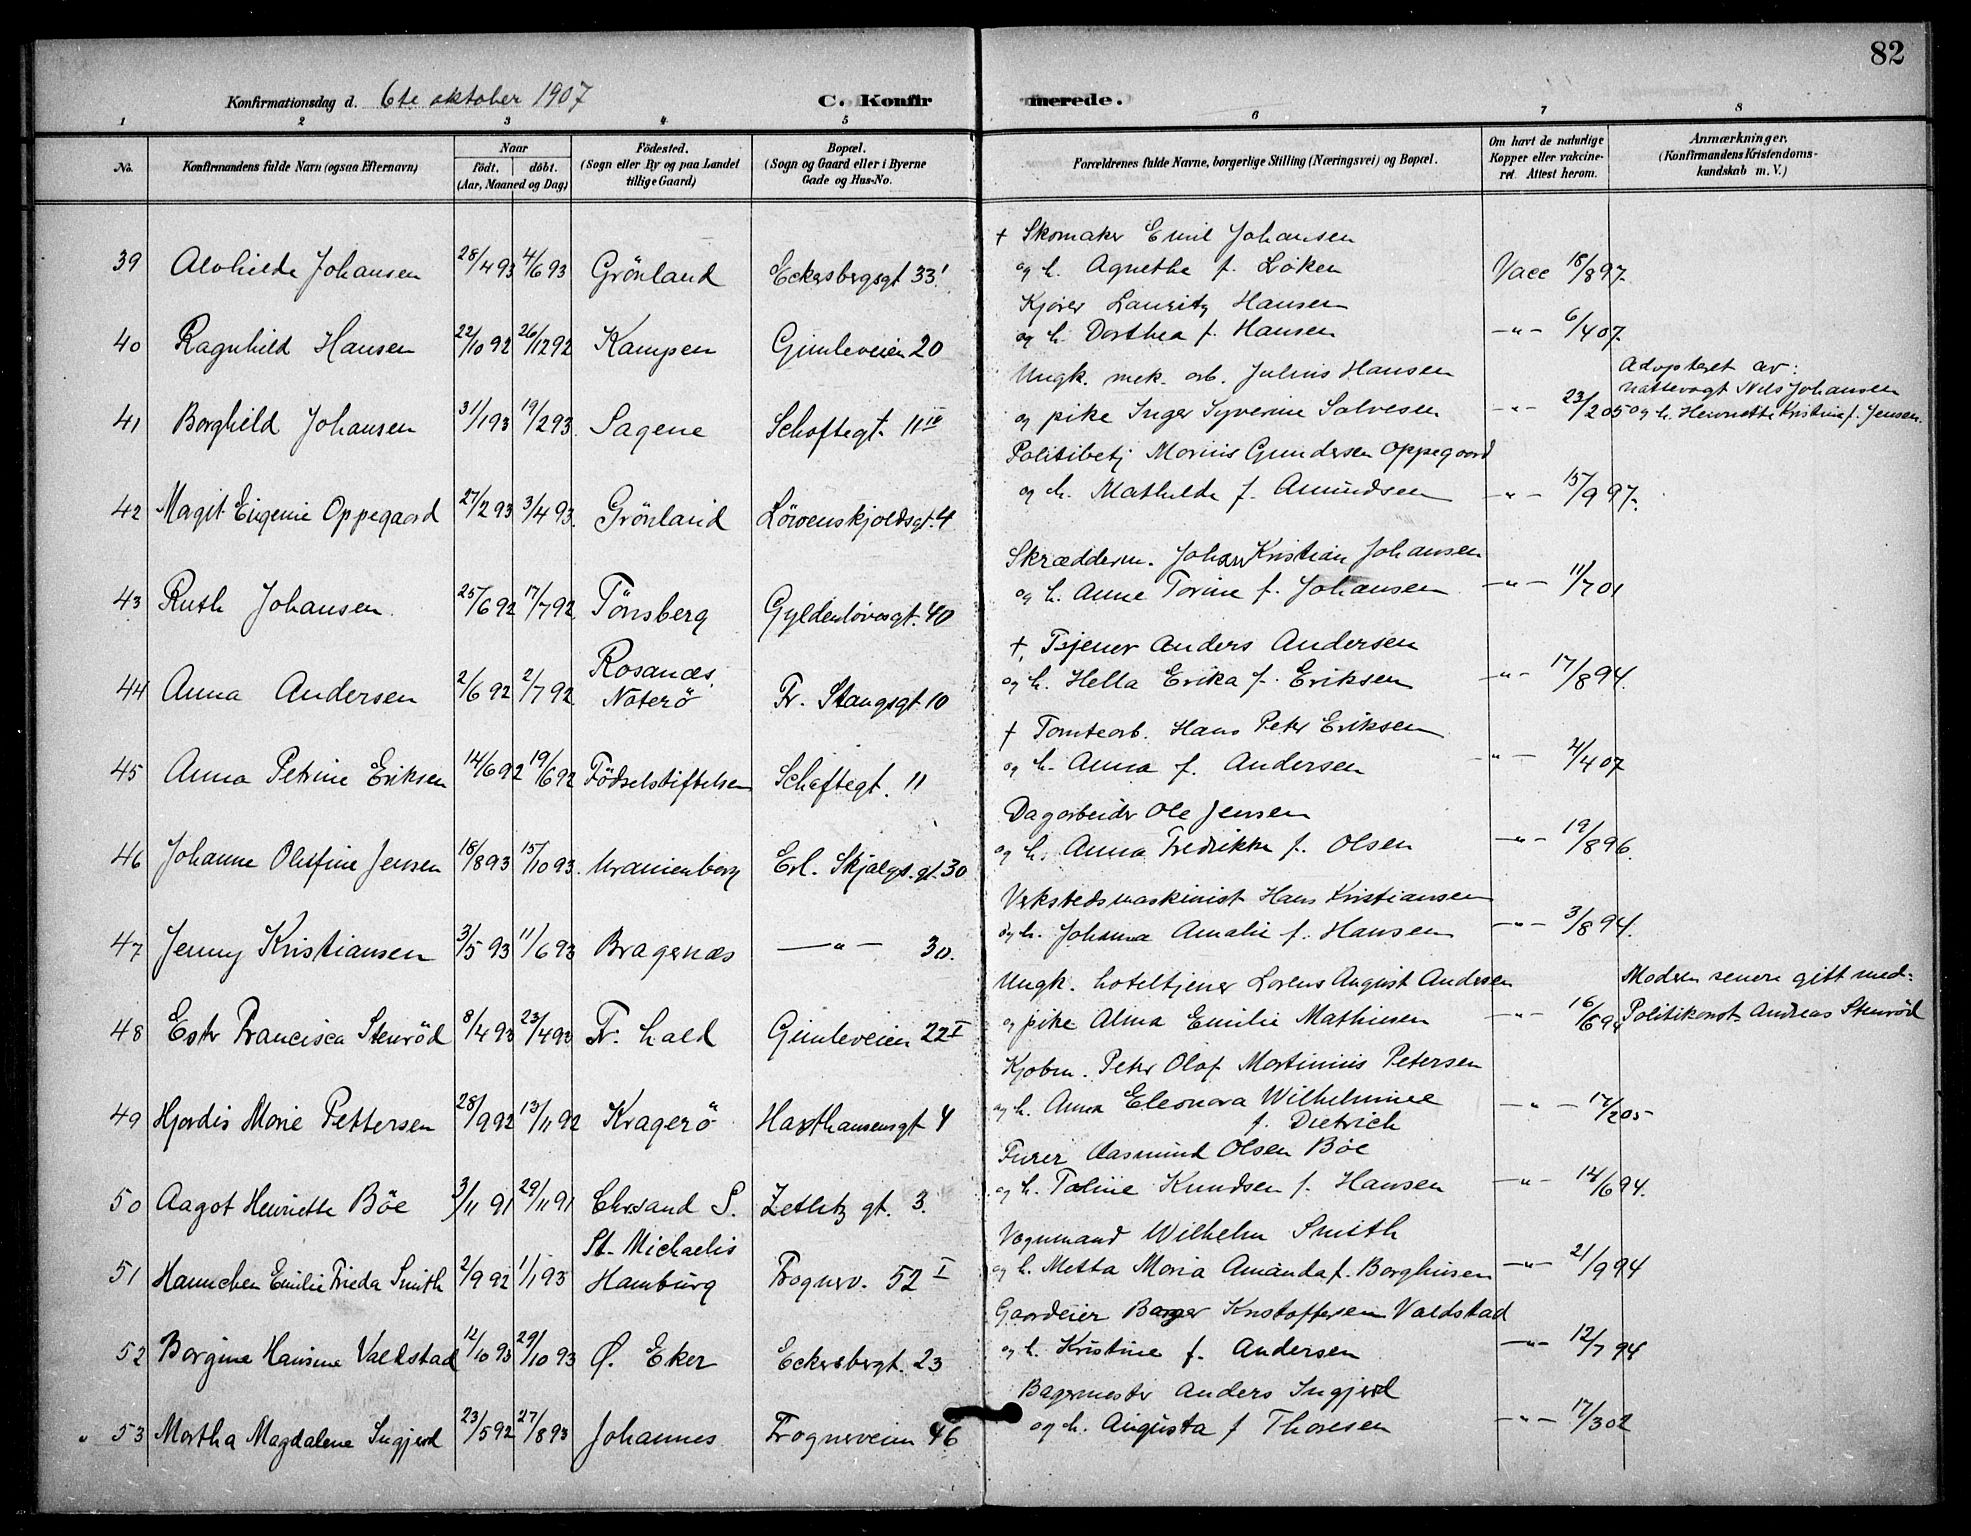 82
Konfirmationsdag d. 6te oktober 1907
C. Konfirmerede.
1 2 3 4 5 6 7 8
No.
Konfirmandens fulde Navn (ogsaa Efternavn)
Naar
Födt. döbt.
(Aar, Maaned og Dag)
Födested.
(Sogn eller By og paa Landet
tillige Gaard)
Bopæl.
(Sogn og Gaard eller i Byerne
Gade og Hus-No.
Forældrenes fulde Navne, borgerlige Stilling (Næringsvei) og Bopæl.
Om havt de naturlige
Kopper eller vakcine-
ret. Attest herom.
Anmærkninger.
(Konfirmandens Kristendoms-
kundskab m. V.)
† Skomaker Emil Johansen
39 Alvhilde Johansen 28/4 93 4/6 93 Grönland Eckersbergsgt 33 I og h. Agnethe f. Löken Vacc 18/8 97.
Kjörer Lauritz Hansen
40 Ragnhild Hansen 22/10 92 26/12 92 Kampen Gimleveien 20 og h. Dorthea f. Hansen –"– 6/4 07.
Ungk. mek. arb. Julius Hansen Adopteret av:
nattevagt Nils Johansen
41 Borghild Johansen 31/1 93 19/2 93. Sagene Schaftegt. 11 IV og pike Inger Syverine Salvesen –"– 23/2 05 og h. Henriette Kristine f. Jensen.
Politibetj Marius Gundersen Oppegaard
42 Magit Eugenie Oppegaard 27/2 93 3/4 93. Grönland Lövenskjoldsgt. 4 og h. Mathilde f. Amundsen –"– 15/9 97.
Skrædderm. Johan Kristian Johansen
43 Ruth Johansen. 25/6 92 17/7 92. Tönsberg Gyldenlövesgt. 40 og h. Anne Torine f. Johansen –"– 11/7 01
†, Tjener Anders Andersen
Rosanæs.
44 Anna Andersen 2/6 92 2/7 92. Noterö Fr. Stangsgt 10 og h. Hella Erika f. Eriksen –"– 17/8 94.
† Tomtearb. Hans Peter Eriksen
45 Anna Petrine Eriksen 14/6 92 19/6 92 Födselstiftelsen Schaftegt. 11 og h. Anna f. Andersen –"– 4/4 07
Dagarbeider Ole Jensen
46 Johanne Olufine Jensen 18/8 93 15/10 93. Uranienborg Erl. Skjalgs. gt. 30 og h. Anna Fredrikke f. Olsen –"– 19/8 96.
Verkstedsmaskinist Hans Kristiansen
47 Jenny Kristiansen 3/5 93 11/6 93 Bragernæs –"– 30. og h. Johanna Amalie f. Hansen –"– 3/8 94.
Ungk. hoteltjener Lorens August Andersen Modren senere gift med:
48 Ester Francisca Stenröd 8/4 93 23/4 93 Fr. hald Gimleveien 22 I og pike Alma Emilie Mathisen –"– 16/6 94 Politikonst Andreas Stenröd
Kjøbm. Peter Olaf Martinius Petersen
49 Hjordis Marie Pettersen 28/9 92 13/11 92 Kragerö Haxthausensgt 4 og h. Anna Eleonora Wilhelmine –"– 17/2 05
f. Dietrich
Furer Aasmund Olsen Böe
50 Aagot Henriette Böe 3/11 91 29/11 91 Chrsand S. Zetlitz gt. 3. og h. Taline Knudsen f. Hansen –"– 14/6 94.
Vognmand Wilhelm Smith
St. Michaelis
51 Hannchen Emilie Frieda Smith 2/9 92 1/1 93 Hamburg Frognerv. 52 I og h. Metta Maria Amanda f. Borghusen –"– 21/9 94
Gaardeier Borger Kristoffersen Valdstad
52 Borgine Hansine Valdstad 12/10 93 29/10 93 Ø. Eker Eckersbergt. 23 og h. Kristine f. Andersen –"– 12/7 94
Bagermester Anders Ingjerd
53 Martha Magdalene Ingjerd 23/5 92 27/8 93 Johannes Frognerveien 46 og h. Augusta f Thoresen –"– 17/3 02